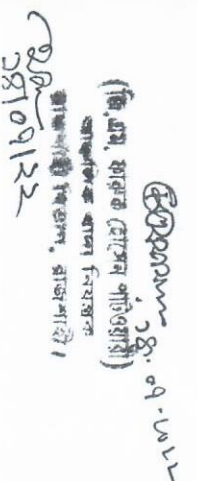 ১৪.০৭.২০২২
(জি.এম. ফারুক হোসেন পাটওয়ারী)
আঞ্চলিক খাদ্য নিয়ন্ত্রক
রাজশাহী বিভাগ, রাজশাহী।
১৪/০৭/২২